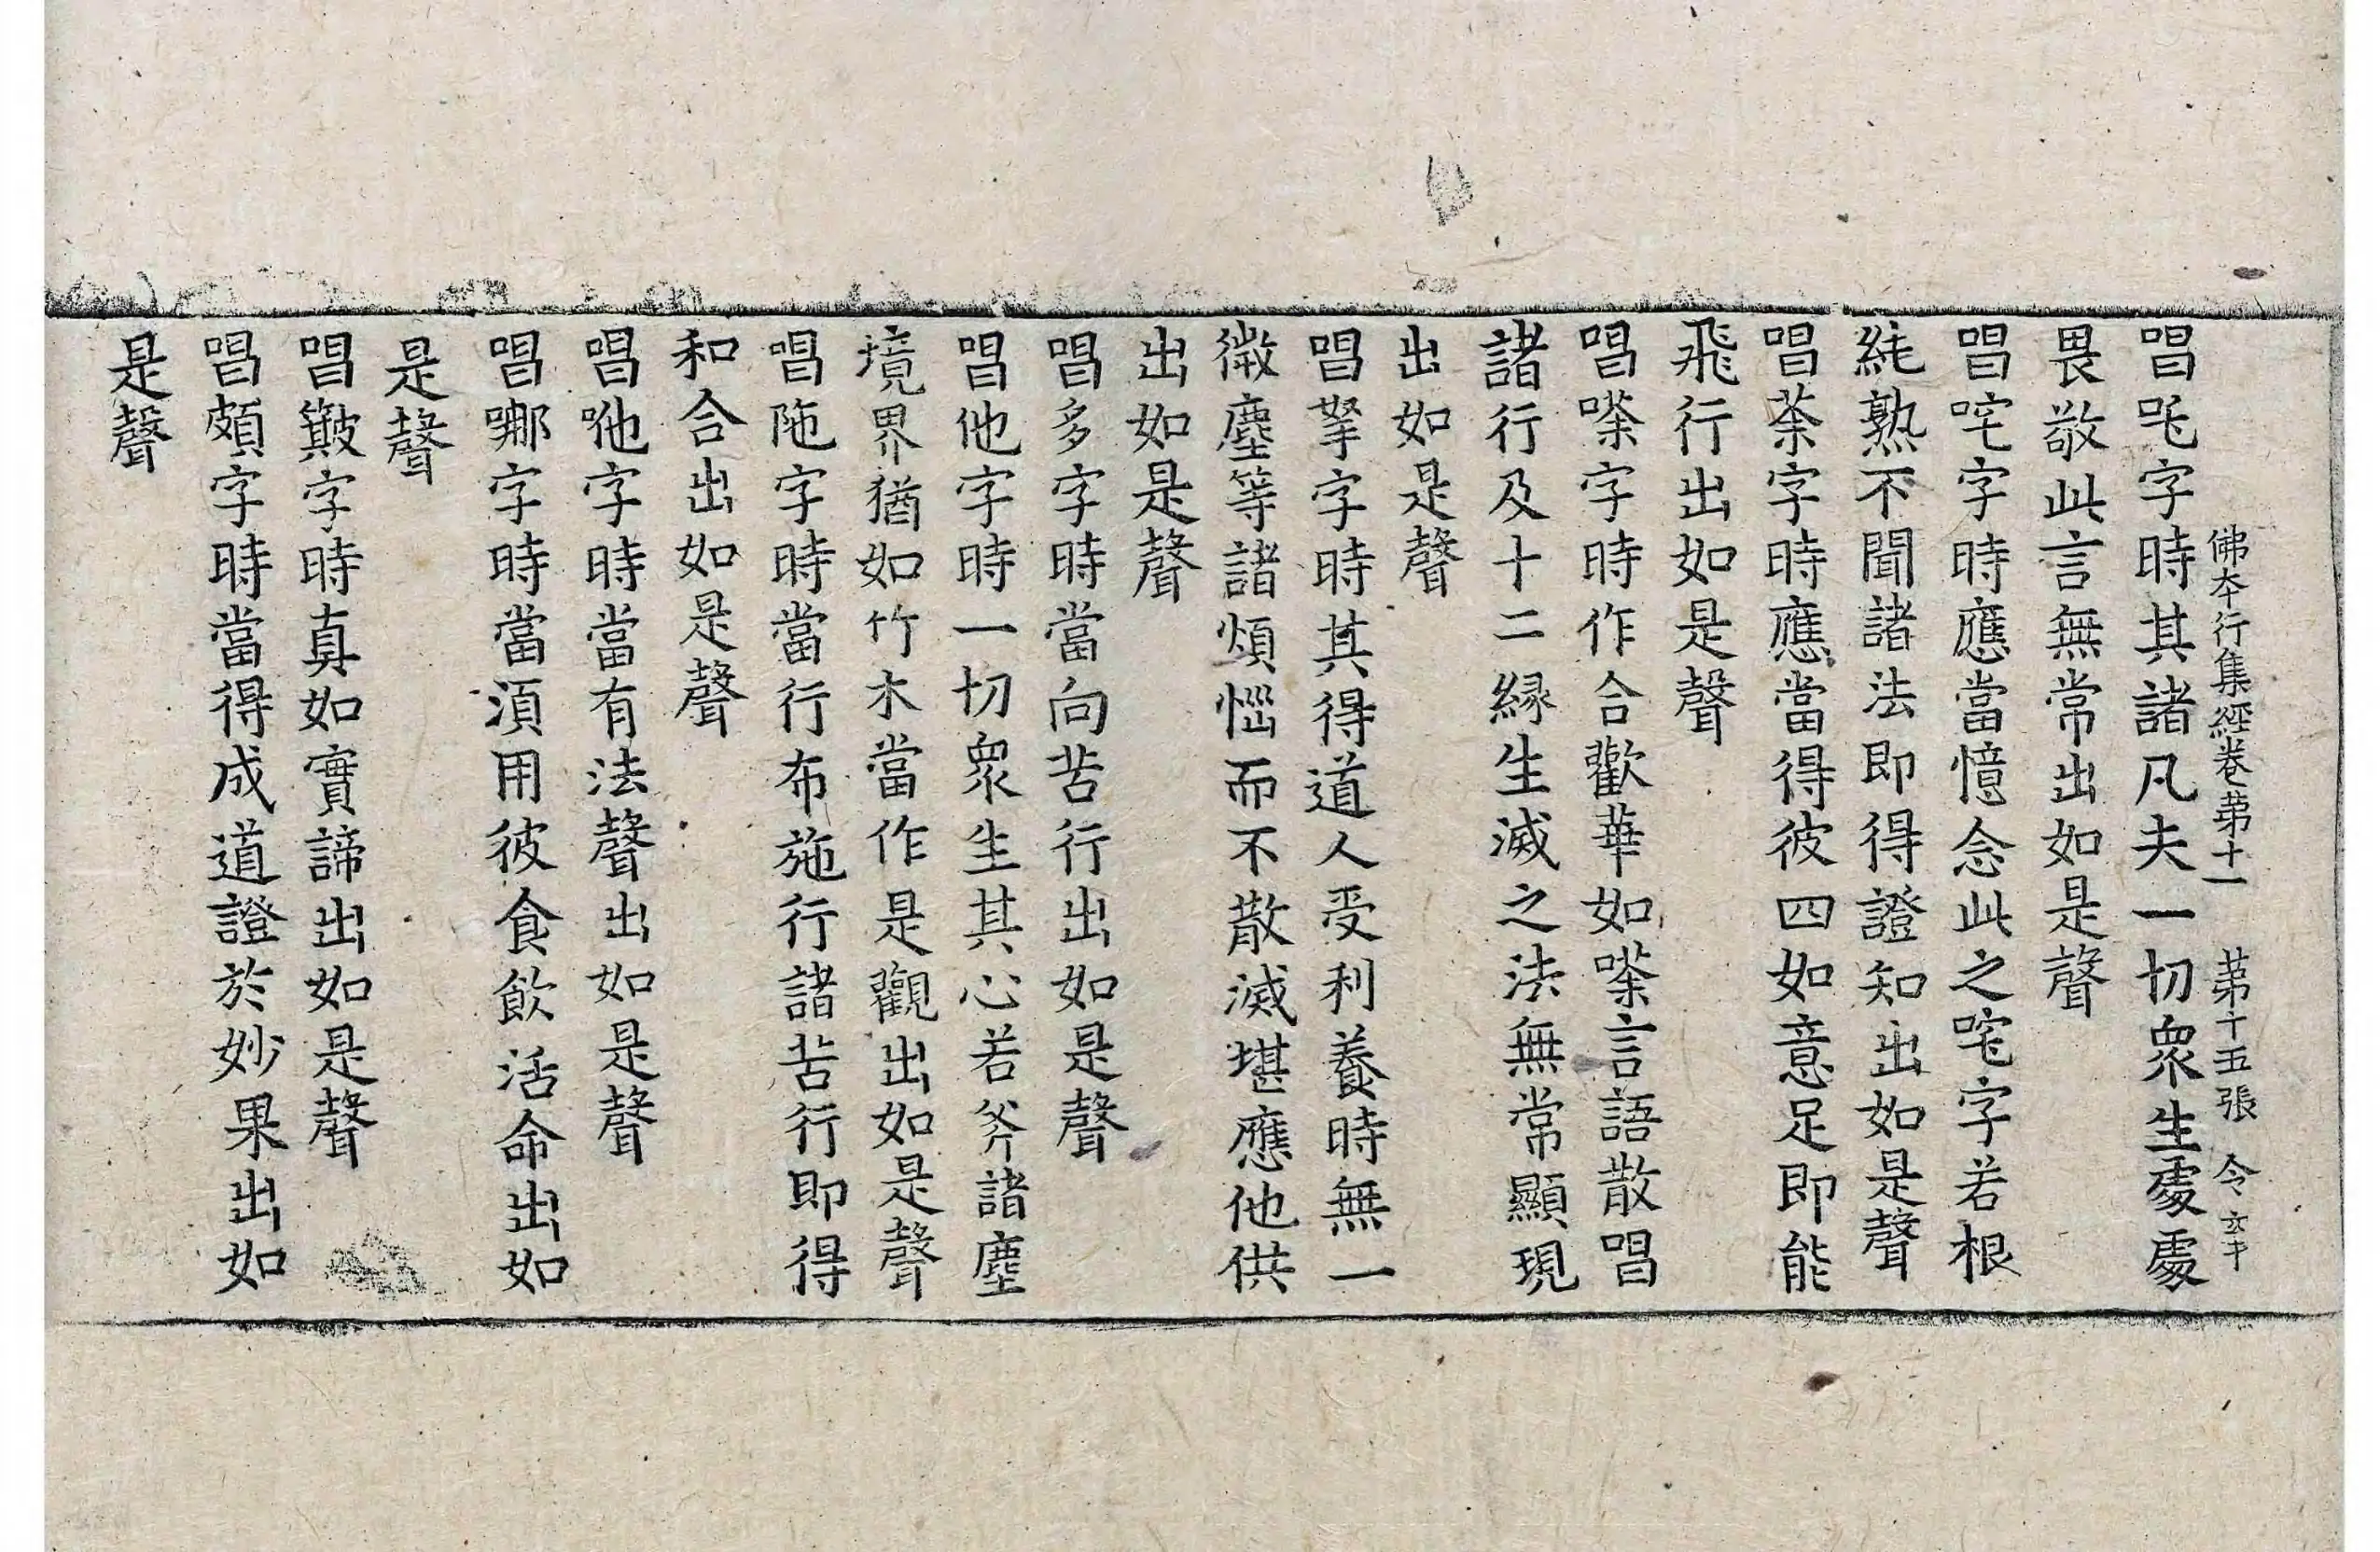 佛本行集經卷苐十一 苐十五張 令
唱吒字時其諸凡夫一切衆生處處
畏敬此言無常出如是聲
唱咤字時應當憶念此之咤字若根
純熟不聞諸法即得證知出如是聲
唱荼字時應當得彼四如意足即能
飛行出如是聲
唱嗏字時作合歡華如嗏言語散唱
諸行及十二縁生滅之法無常顯現
出如是聲
唱拏字時其得道人受利養時無一
微塵等諸煩惱而不散滅堪應他供
出如是聲
唱多字時當向苦行出如是聲
唱他字時一切衆生其心若斧諸塵
境界猶如竹木當作是觀出如是聲
唱陁字時當行布施行諸苦行即得
和合出如是聲
唱咃字時當有法聲出如是聲
唱哪字時當湏用彼食飲活命出如
是聲
唱簸字時真如實諦出如是聲
唱頗字時當得成道證於妙果出如
是聲